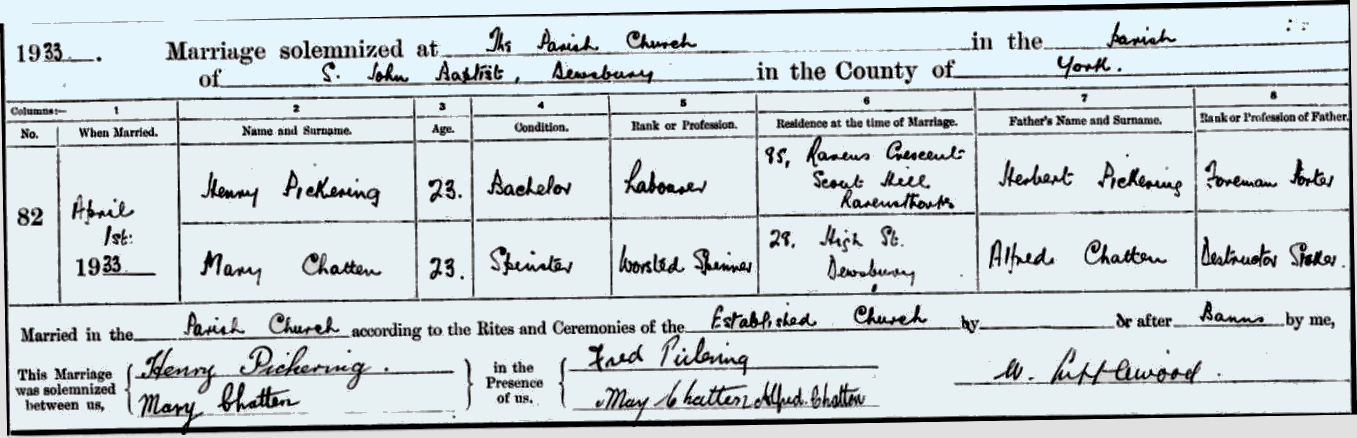 1933. Marriage solemnized at The Parish Church in the Parish
of S. John Baptist, Dewsbury in the County of York.
Columns:— 1 2 3 4 5 6 7 8
No. When Married. Name and Surname. Age. Condition. Rank or Profession. Residence at the time of Marriage. Father's Name and Surname. Rank or Profession of Father.
82 April 1st: 1933
Henry Pickering 23. Bachelor Labourer 95, Ravens Crescent Scout Hill Ravensthorpe Herbert Pickering Foreman Porter
Mary Chatten 23. Spinster Worsted Spinner 28, High St. Dewsbury Alfred Chatten Destructor Stoker.
Married in the Parish Church according to the Rites and Ceremonies of the Established Church by or after Banns by me,
This Marriage was solemnized between us, Henry Pickering. Mary Chatten
in the Presence of us. Fred Pickering May Chatten Alfred Chatten
W.